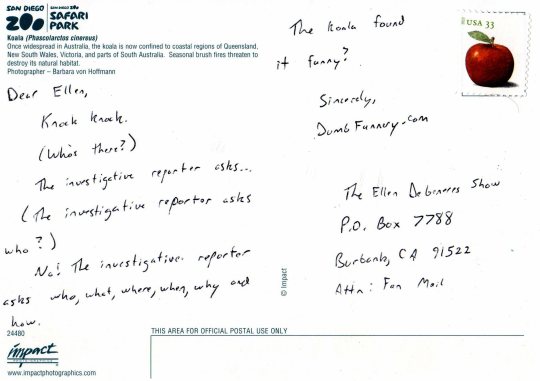 SAN DIEGO
ZOO
SAN DIEGO ZOO
SAFARI
PARK
Koala (Phascolarctos cinereus)
Once widespread in Australia, the koala is now confined to coastal regions of Queensland,
New South Wales, Victoria, and parts of South Australia. Seasonal brush fires threaten to
destroy its natural habitat.
Photographer – Barbara von Hoffmann
Dear Ellen,
Knock knock.
(Who's there?)
The investigative reporter asks...
(The investigative reporter asks
who?)
No! The investigative reporter
asks who, what, where, when, why and
how.
24480
impact
www.impactphotographics.com
© Impact
The koala found
it funny?
Sincerely,
DumbFunnery.com
USA 33
The Ellen Degeneres Show
P.O. Box 7788
Burbank, CA 91522
Attn: Fan Mail
THIS AREA FOR OFFICIAL POSTAL USE ONLY